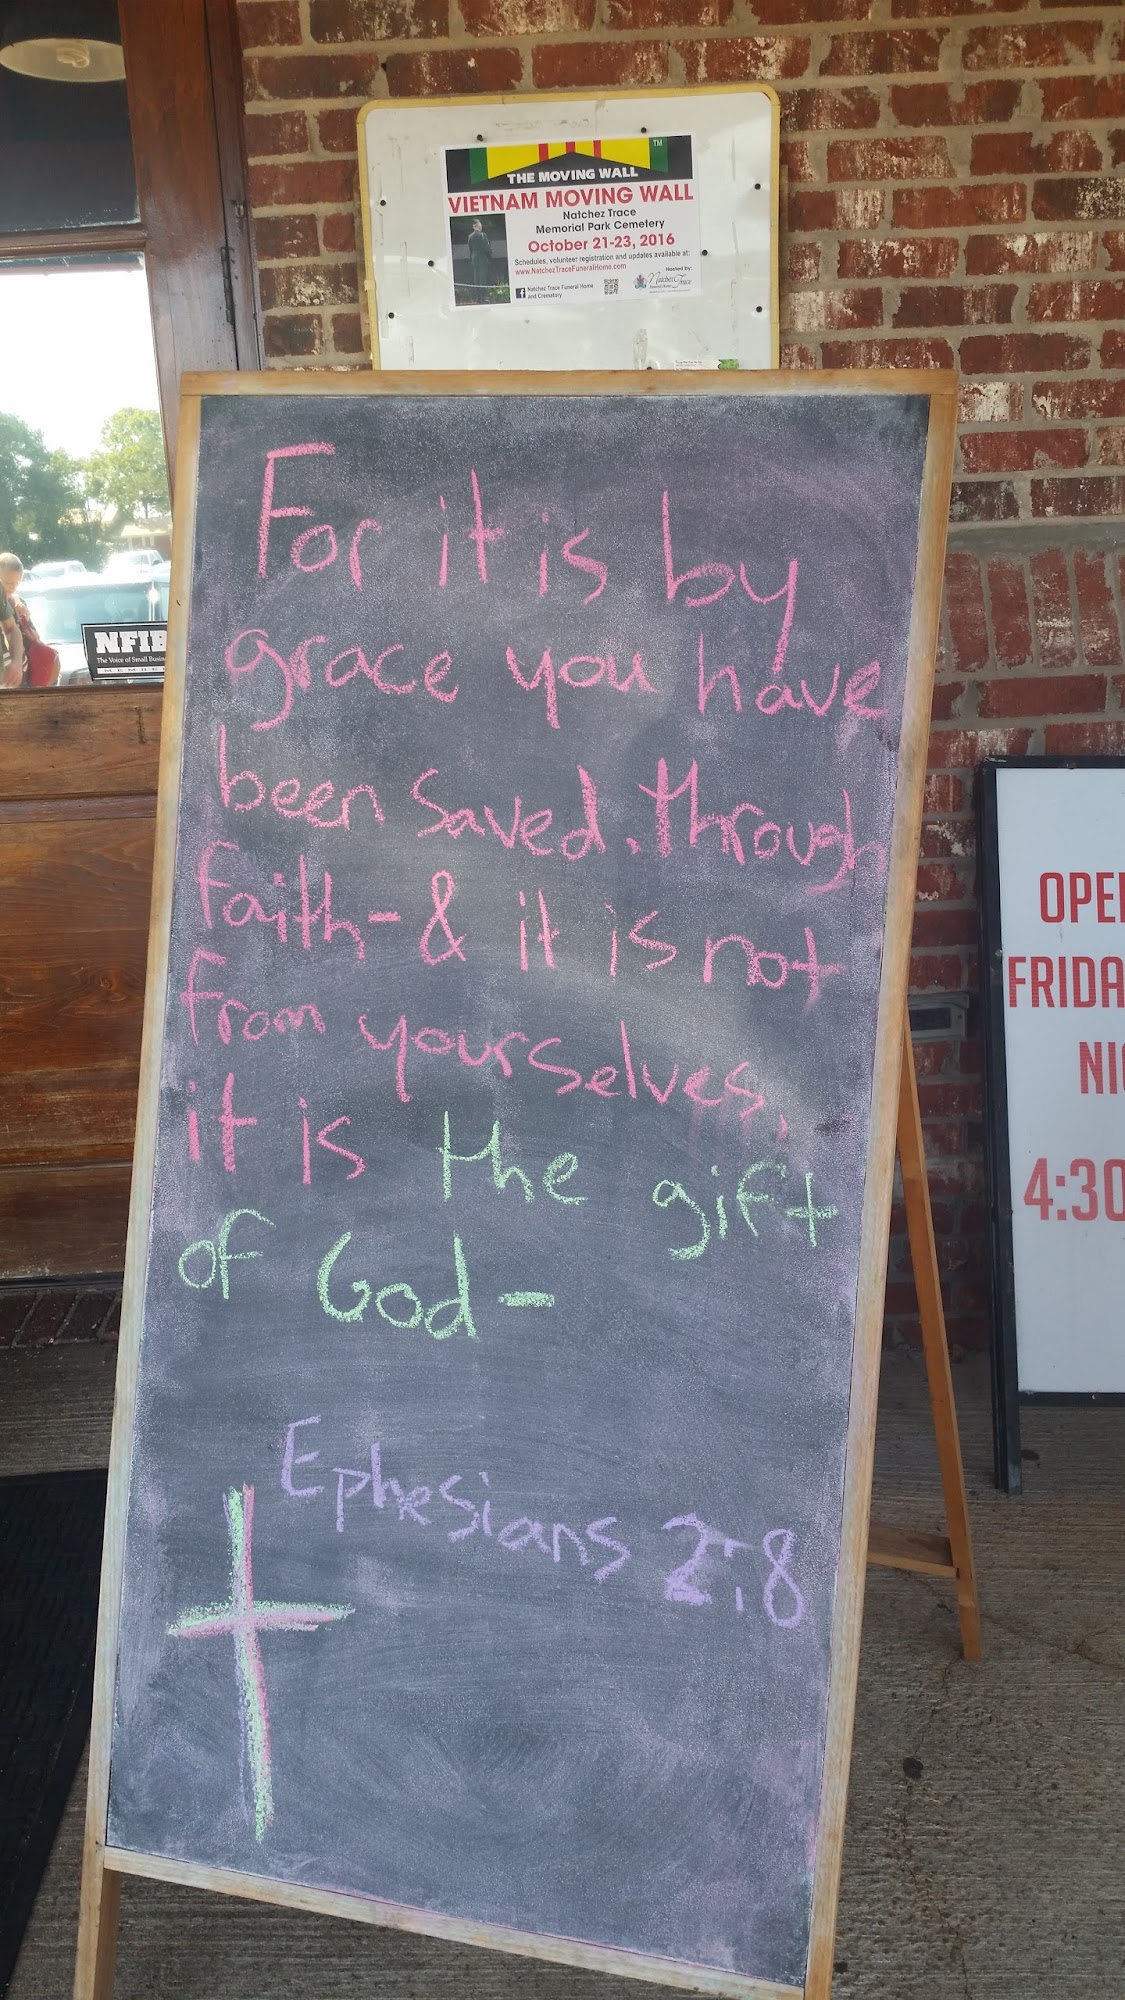 TM
THE MOVING WALL
VIETNAM MOVING WALL
Natchez Trace
Memorial Park Cemetery
October 21-23, 2016
Schedules, volunteer registration and updates available at:
www.NatchezTraceFuneralHome.com
Hosted by:
Natchez Trace
Natchez Trace Funeral Home
and Crematory
For it is by
grace you have
been saved. through
faith - & it is not
from yourselves,
it is the gift
of God -
Ephesians 2:8
NFIB
The Voice of Small Busin
MEMBE
OPE
FRIDA
NI
4:30